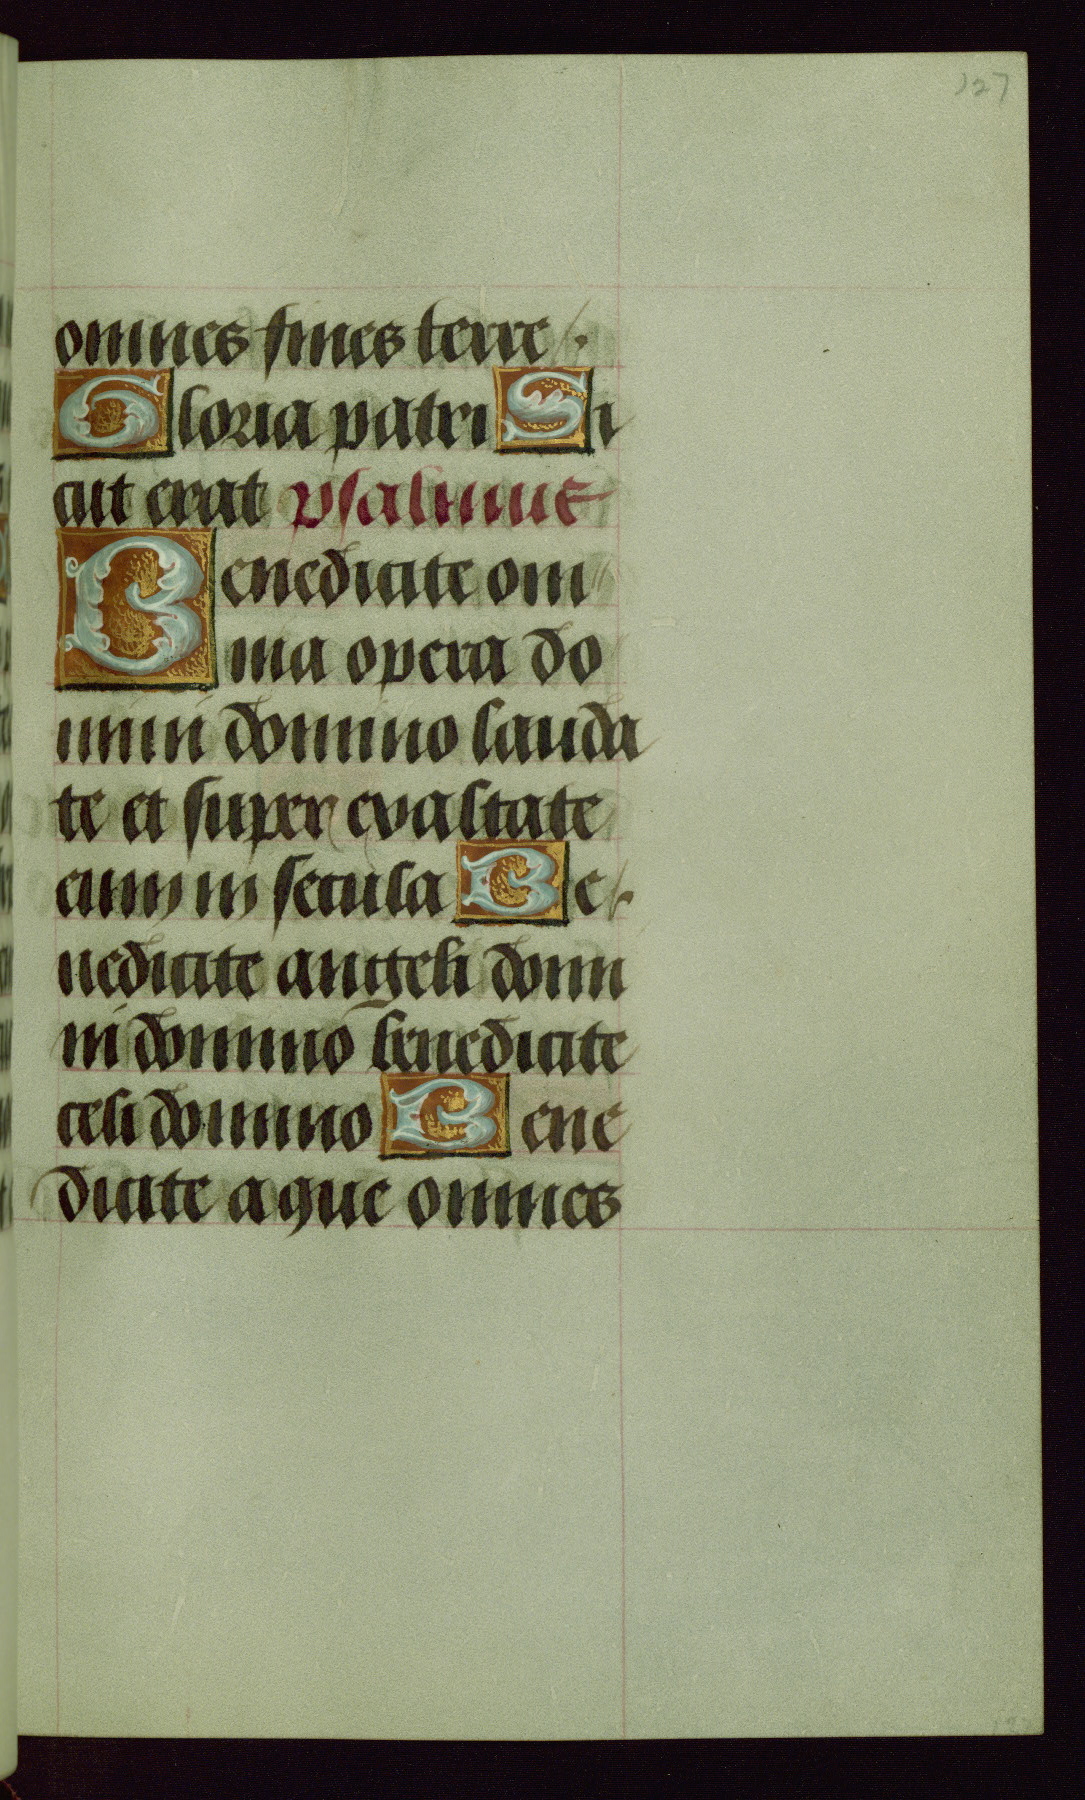 127
omnes fines terre.
Gloria patri Si
cut erat psalmus
Benedicite om
nia opera do
mini domino lauda
te et super exaltate
eum in secula Be
nedicite angeli domi
ni domino benedicite
celi domino Bene
dicite aque omnes